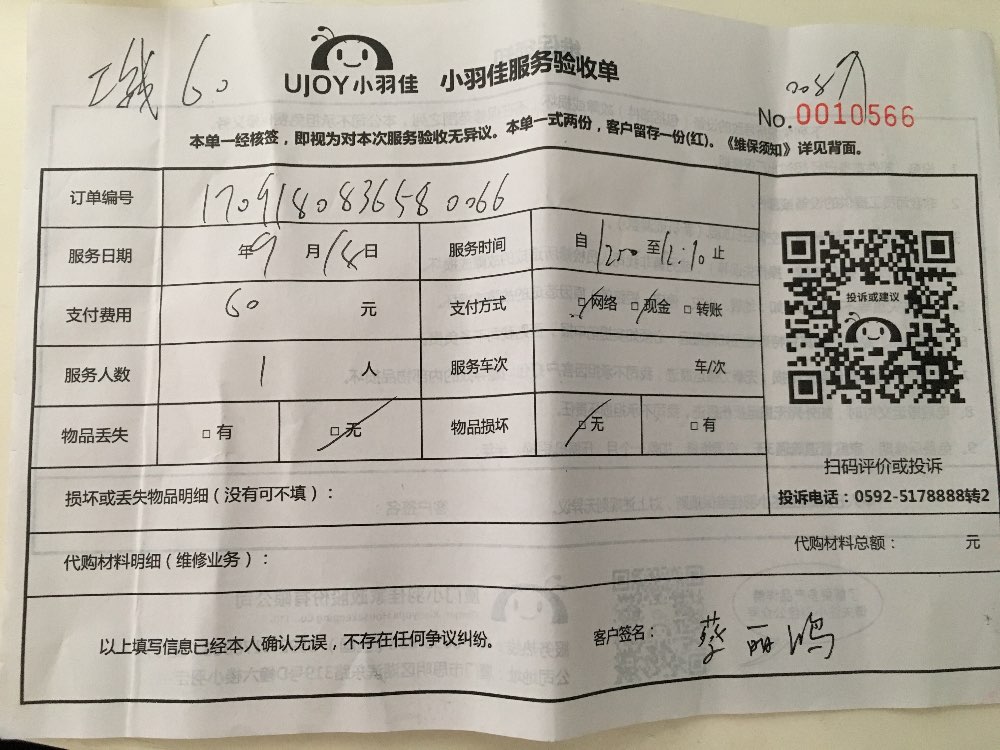 工钱 60
UJOY小羽佳 小羽佳服务验收单
No.0010566
本单一经核签，即视为对本次服务验收无异议。本单一式两份，客户留存一份(红)。《维保须知》详见背面。
订单编号 1709180836580066
服务日期 年9月18日 服务时间 自 至12:10止
支付费用 60 元 支付方式 □网络 □现金 □转账
服务人数 1 人 服务车次 车/次
物品丢失 □有 □无 物品损坏 □无 □有
投诉或建议
扫码评价或投诉
投诉电话：0592-5178888转2
损坏或丢失物品明细（没有可不填）：
代购材料明细（维修业务）： 代购材料总额： 元
以上填写信息已经本人确认无误，不存在任何争议纠纷。 客户签名： 蔡丽鸿